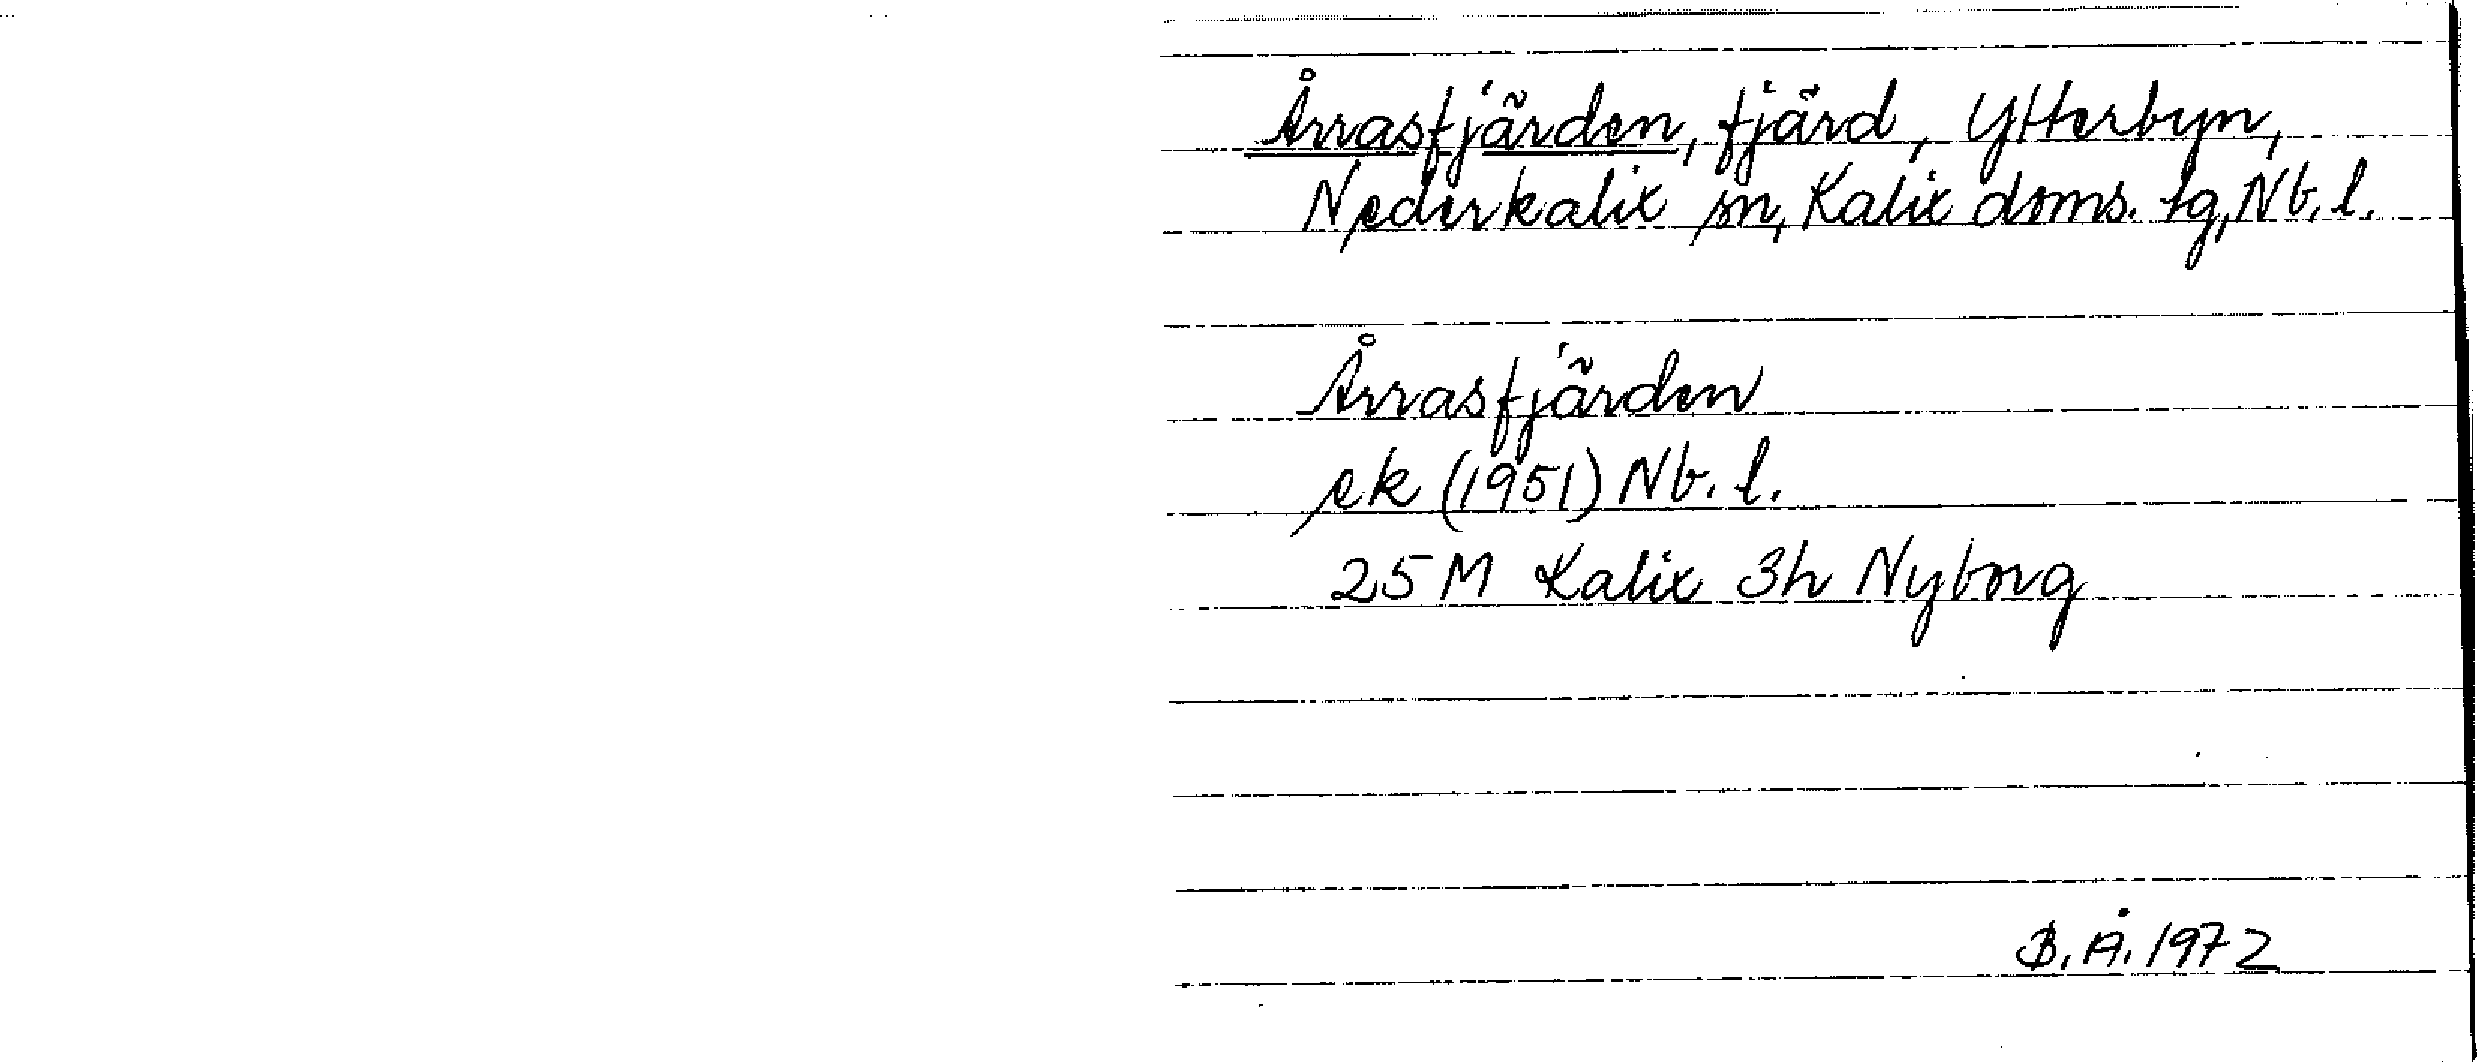 Årrasfjärden, fjärd, Ytterbyn,
Nederkalix sn, Kalix doms. tg, Nb. l.
Årrasfjärden
ek (1951) Nb. l.
25 M Kalix 3h Nyborg
B. Å. 1972